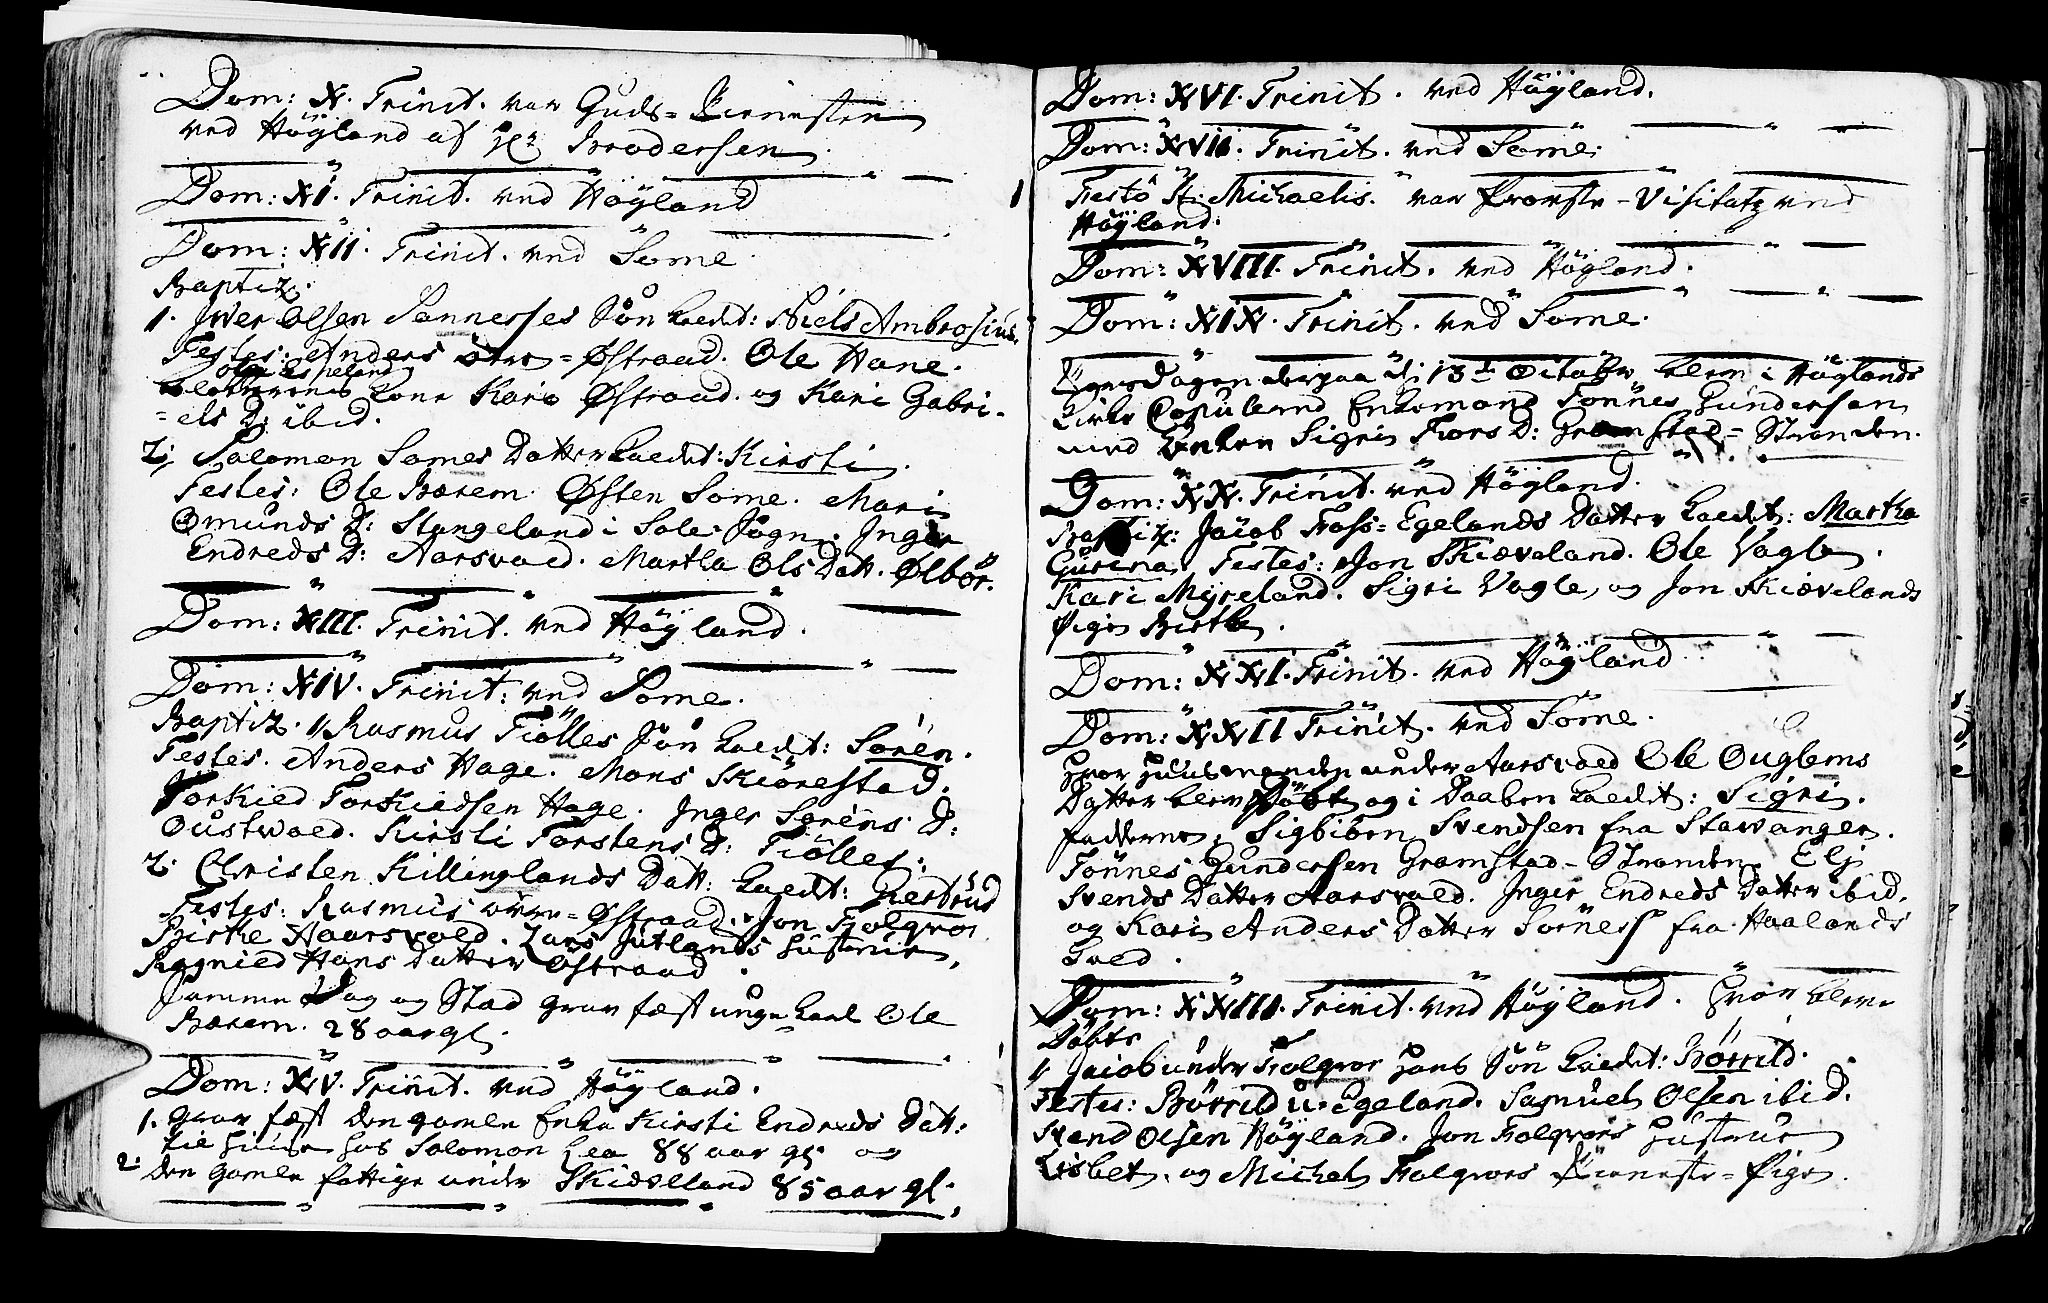 Dom: X. Trinit. var Guds-Tienesten
ved Höyland af Hr Brodersen
Dom: XI. Trinit. ved Höyland
Dom: XII. Trinit. ved Some
Baptiz.
1. Iver Olsen Sannesses Sön kaedt: Niels Ambrosius.
Testes: Anders øvre-Østraad. Ole Hane.
Olle Espeland
Klokkerens Kone Kari Østraad. og Kari Gabri-
-els D: ibid.
2; Salomon Somes Datter kaedt: Kirsti.
Testes: Ole Bærem. Østen Some. Mari
Omunds D: Stangeland i Sole-Sogn. Inger
Endreds D: Aarsvoed. Martha Ols Datt. Ølbör.
Dom: XIII. Trinit. ved Höyland.
Dom: XIV. Trinit: ved Some.
Baptiz. 1, Rasmus Tiölles Sön kaedt: Sörén.
Testes. Anders Hage. Mons Skiörestad.
Torkied Torkiedsen Hage. Inger Sørens D:
Oustvoed. Kirsti Torstens D: Tiölles:
2. Christen Killinglands Datt: kaedt: Giertrud
Testes: Rasmus övre-Østraad. Jon Folgvor
Birthe Haarsvoed. Lars Jutlands Hustrue,
Ragnied Hans Datter Østraad.
Samme Dag og Stad Grav fæst unge Karl Ole
Bærem. 28 aar gl.
Dom: XV. Trinit. ved Höyland.
1. Grav fæst den gamle Enke Kirsti Endreds Datt:
til Huuse hos Salomon Lea 88 aar gl. og
2. den gamle fattige under Skiævland 85 aar gl.
Dom: XVI. Trinit. ved Höyland.
Dom: XVII. Trinit. ved Some.
Festo St: Michaelis. var Provste-Visitatz ved
Höyland.
Dom: XVIII. Trinit. ved Höyland.
Dom: XIX. Trinit. ved Some.
Torsdagen derpaa d: 13de Octobr blev i Höylands
Kirke Copuleret Enkemand Tönnes Gundersen
med Enken Sigri Tors D: Gramstad-Stranden.
Dom: XX. Trinit. ved Höyland.
Baptiz: Jacob Foss-Egelands Datter kaedt: Martha
Gurina. Testes: Jon Skiæveland. Ole Vagle.
Kari Myreland. Sigri Vagle, og Jon Skiævelands
Pige Birthe.
Dom: XXI. Trinit. ved Höyland
Dom: XXII Trinit. ved Some.
Hvor Huusmanden under Aarsvoed Ole Ouglems
Datter blev döbt og i Daaben kaedt: Sigri.
Faddernes Sigbiörn Svendsen fra Stavanger.
Tönnes Gundersen Gramstad-Stranden. Eli
Svends Datter Aarsvoed. Inger Endreds Datter ibid.
og Kari Anders Datter Sörness fra Haalands
Gield.
Dom: XXIII. Trinit. ved Höyland. Hvor blev
Döbte
1, Jacob under Folgvor hans Sön kaedt: Börrild.
Testes: Börrild u. Egeland. Samuel Olsen ibid.
Svend Olsen Höyland. Jon Folgvors Hustrue
Lisbet. og Michel Folgvors Tieneste-Pige.